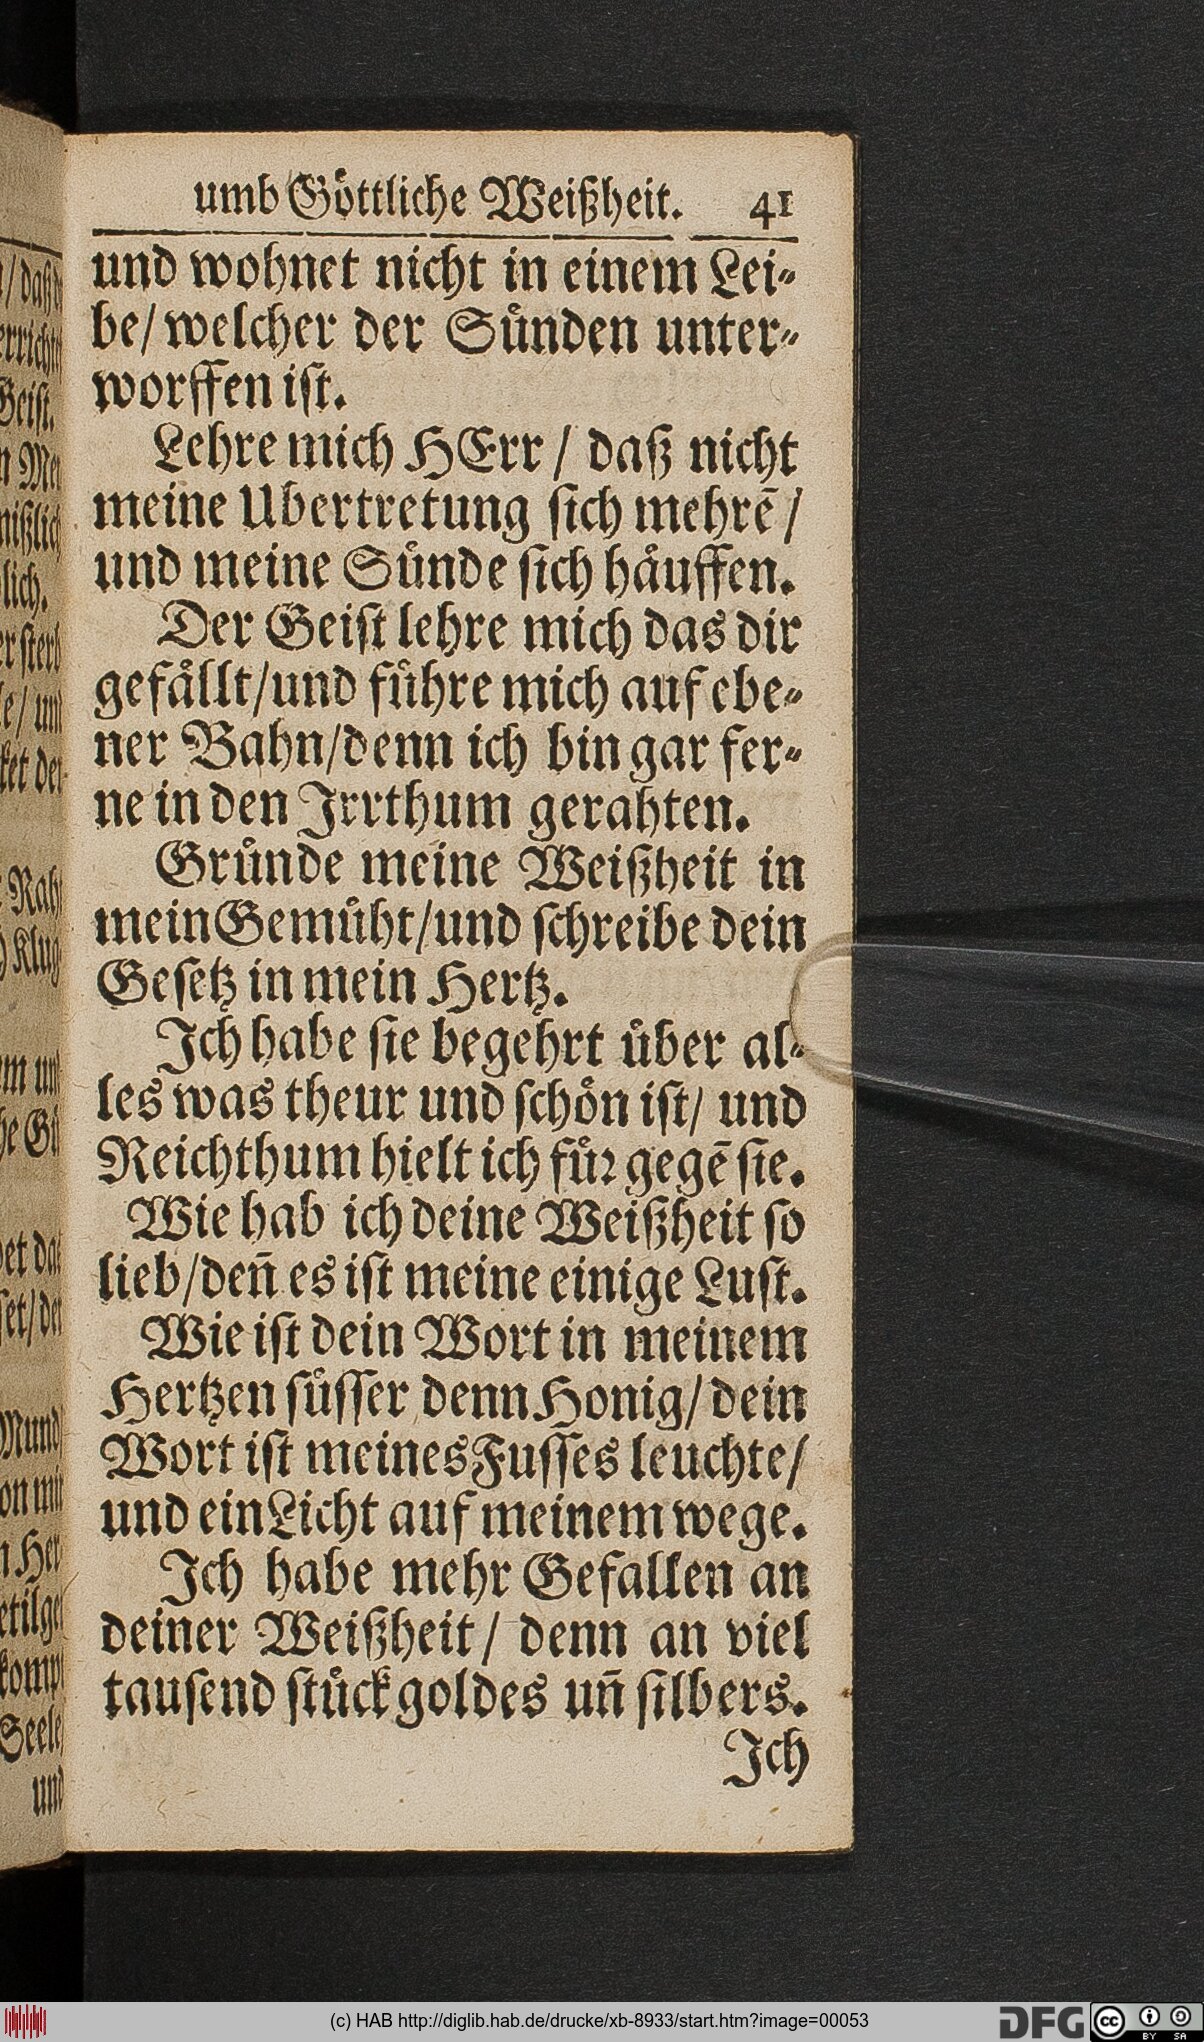 umb Göttliche Weißheit. 41
und wohnet nicht in einem Lei-
be/ welcher der Sünden unter-
worffen ist.
Lehre mich HErr / daß nicht
meine Ubertretung sich mehrē /
und meine Sünde sich häuffen.
Der Geist lehre mich das dir
gefällt/und führe mich auf ebe-
ner Bahn/denn ich bin gar fer-
ne in den Irrthum gerahten.
Gründe meine Weißheit in
mein Gemüht/und schreibe dein
Gesetz in mein Hertz.
Ich habe sie begehrt über al-
les was theur und schön ist/ und
Reichthum hielt ich für gegē sie.
Wie hab ich deine Weißheit so
lieb/deñ es ist meine einige Lust.
Wie ist dein Wort in meinem
Hertzen süsser denn Honig/ dein
Wort ist meines Fusses leuchte/
und ein Licht auf meinem wege.
Ich habe mehr Gefallen an
deiner Weißheit / denn an viel
tausend stück goldes uñ silbers.
Ich
(c) HAB http://diglib.hab.de/drucke/xb-8933/start.htm?image=00053
DFG
cc BY SA